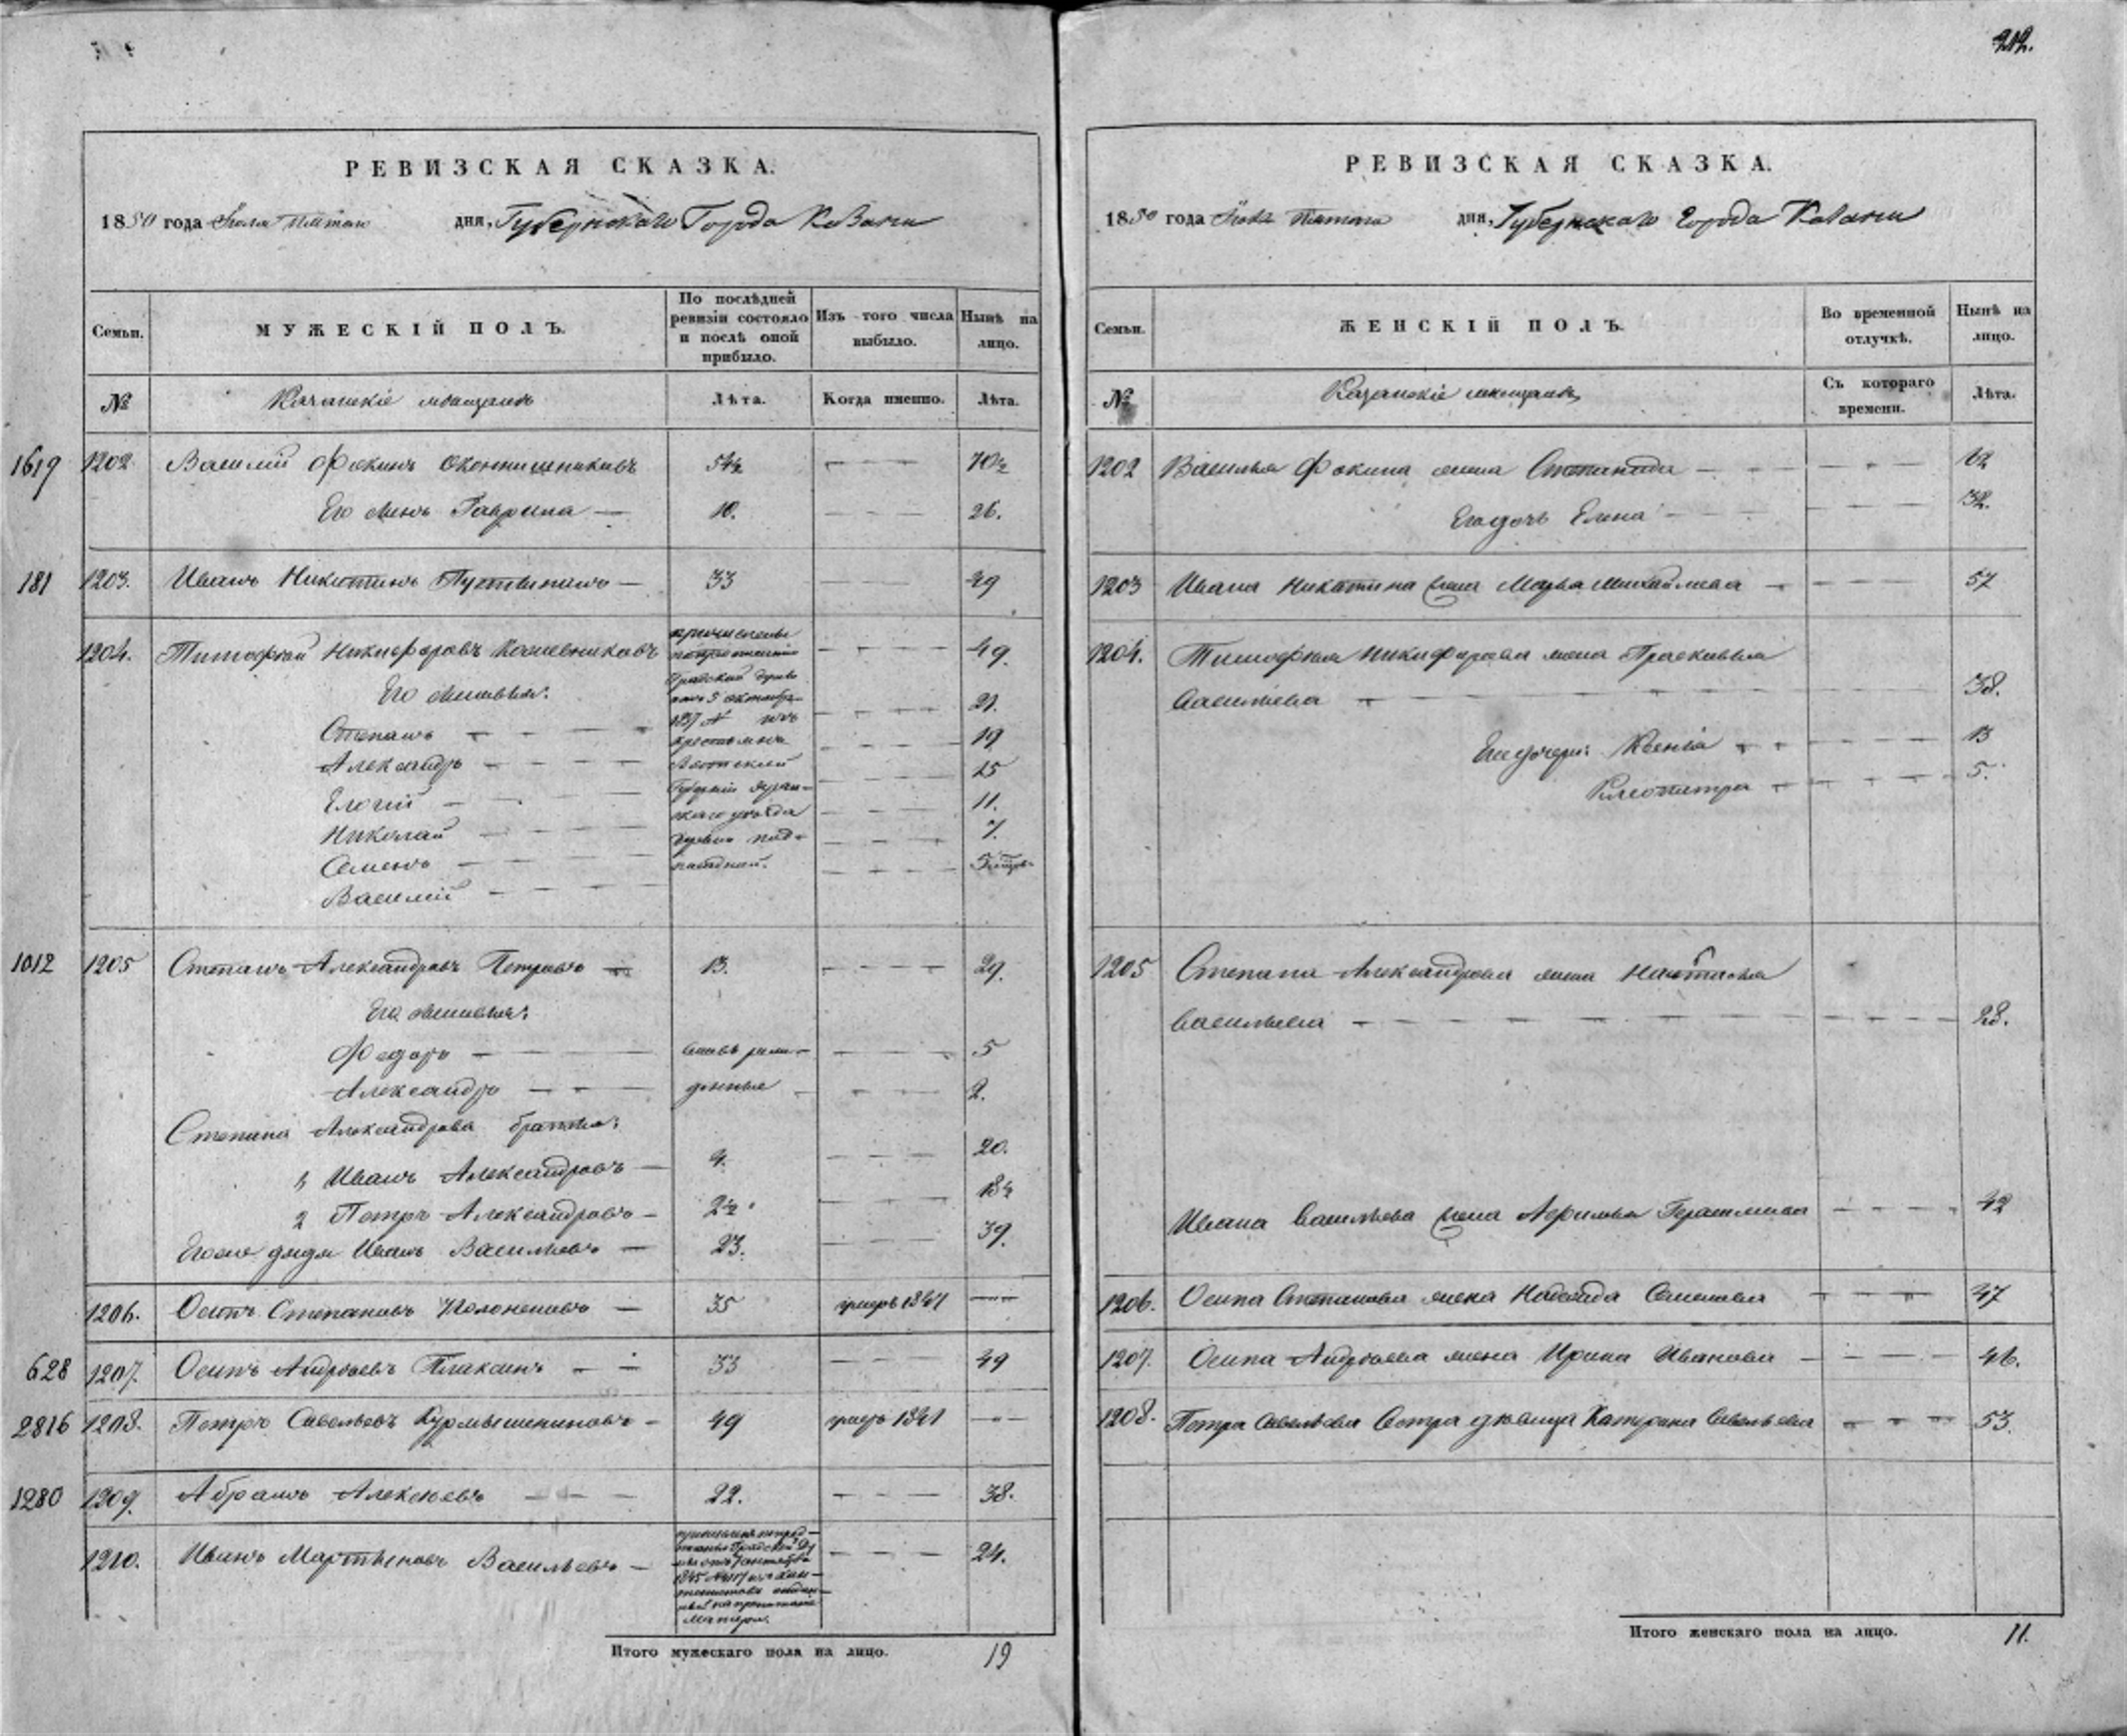 212.
РЕВИЗСКАЯ СКАЗКА.
1850 года дня, Губернскаго Города Казани
Семьи.
МУЖЕСКІЙ ПОЛЪ.
По послѣдней ревизіи состояло и послѣ оной прибыло.
Изъ того числа выбыло.
Нынѣ на лицо.
№
Казанскіе мѣщане
Лѣта.
Когда именно.
Лѣта.
1619 1202 Василій Фокинъ Оконишниковъ 54½ — — — 70½
Его сынъ Гаврила — 10. — — — 26.
181 1203. Иванъ Никитинъ — 33 — — — 49
1204. Тимофей Никифоровъ Кошевниковъ — — — 49.
Его сыновья:
Степанъ — — — 21.
Александръ — — — 19
Елогій — — — 15
Николай — — — 11.
Семенъ — — — 7.
Василій — — — 5
причислены
Градской Думы
отъ 5 октября
1837 № изъ
крестьянъ
Вятской
Губерніи
скаго уѣзда
1012 1205 Степанъ Александровъ Петровъ — 13. — — — 29.
Его сыновья:
Федоръ — вновь рож- — — — 5
Александръ — — денные — — — 2.
Степана Александрова братья:
1, Иванъ Александровъ — 4. — — — 20.
2 Петръ Александровъ — 2½ — — — 18½
Его же дядя Иванъ Васильевъ — 23. 39.
1206. Осипъ Степановъ — 35 умеръ 1841 —
628 1207. Осипъ Андреевъ Плаксинъ — — 33 — — — 49
2816 1208. Петръ Савельевъ Курмышениновъ — 49 умеръ 1841 — —
1280 1209. Абрамъ Алексѣевъ — — — 22. — — — 38.
1210. Иванъ Мартыновъ Васильевъ — — — — 24.
Градской Ду
1845
Матери.
Итого мужескаго пола на лицо. 19
РЕВИЗСКАЯ СКАЗКА.
1850 года дня, Губернскаго Города Казани
Семьи.
ЖЕНСКІЙ ПОЛЪ.
Во временной отлучкѣ.
Нынѣ на лицо.
№
Казанскіе мѣщане
Съ котораго времени.
Лѣта.
1202 Василья Фокина жена Степанида — — — 62
Его дочь Елена — — — 32.
1203 Ивана Никитина жена Марва Михайлова — — — 57
1204. Тимофея Никифорова жена Прасковья
Васильева — — — 38.
Его дочери: Ксенія — — — 13
Клеопатра — — — 5.
1205 Степана Александрова жена Настасья
Васильева — — — 28.
Ивана Васильева жена Афимья Герасимова — — — 42
1206. Осипа Степанова жена Надежда Семенова — — — 47
1207. Осипа Андреева жена Ирина Иванова — — — 46.
1208. Петра Савельева Сестра дѣвица Катерина Савельева — — — 53.
Итого женскаго пола на лицо. 11.